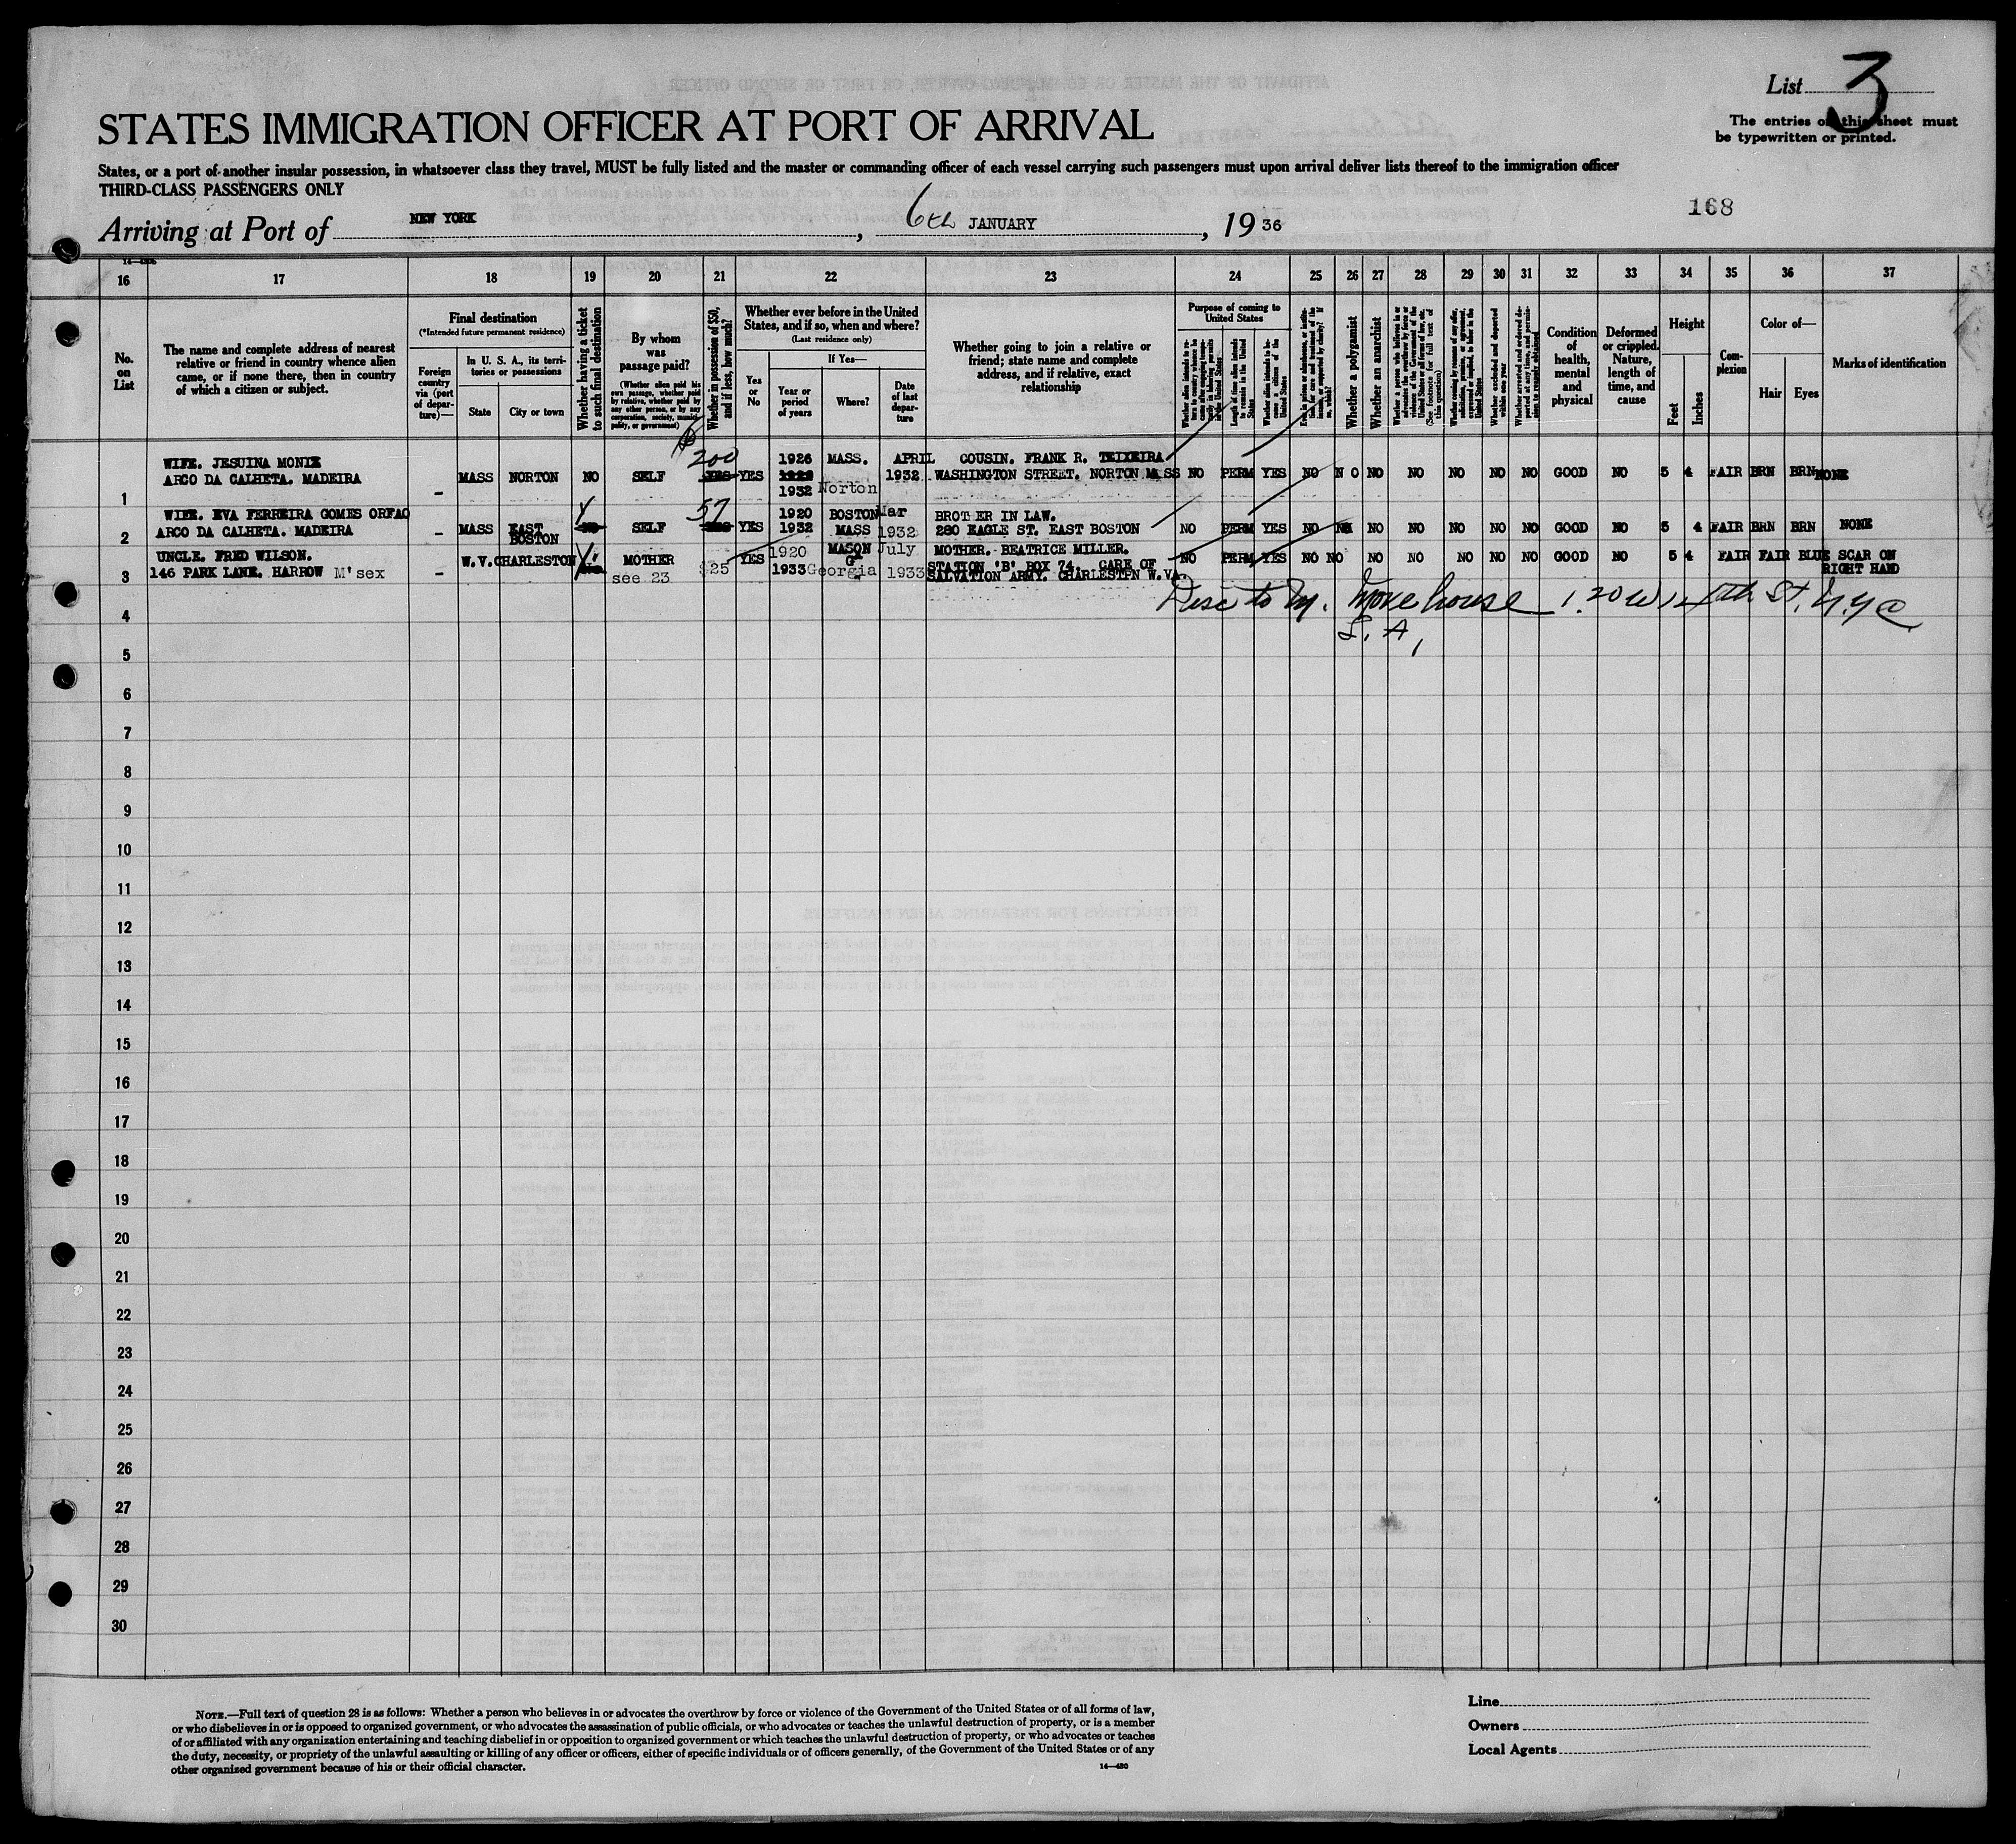 List 3
The entries on this sheet must
be typewritten or printed.
STATES IMMIGRATION OFFICER AT PORT OF ARRIVAL
States, or a port of another insular possession, in whatsoever class they travel, MUST be fully listed and the master or commanding officer of each vessel carrying such passengers must upon arrival deliver lists thereof to the immigration officer
THIRD-CLASS PASSENGERS ONLY
168
Arriving at Port of NEW YORK, 6th JANUARY, 1936
16 17 18 19 20 21 22 23 24 25 26 27 28 29 30 31 32 33 34 35 36 37
No. on List
The name and complete address of nearest
relative or friend in country whence alien
came, or if none there, then in country
of which a citizen or subject.
Final destination
(*Intended future permanent residence)
Foreign country via (port of departure)—
In U. S. A., its territories or possessions
State
City or town
Whether having a ticket to such final destination
By whom was passage paid?
(Whether alien paid his own passage, whether paid by relative, whether paid by any other person, or by any corporation, society, municipality, or government)
Whether in possession of $50, and if less, how much?
Whether ever before in the United
States, and if so, when and where?
(Last residence only)
Yes or No
If Yes—
Year or period of years
Where?
Date of last departure
Whether going to join a relative or
friend; state name and complete
address, and if relative, exact
relationship
Purpose of coming to United States
Whether a polygamist
Whether an anarchist
Condition of health, mental and physical
Deformed or crippled. Nature, length of time, and cause
Height
Feet
Inches
Complexion
Color of—
Hair
Eyes
Marks of identification
WIFE. JESUINA MONIZ 1926 MASS. APRIL COUSIN. FRANK R. TEIXEIRA
$200
ARCO DA CALHETA. MADEIRA MASS NORTON NO SELF YES YES 1932 WASHINGTON STREET. NORTON MASS NO PERM YES NO NO NO NO NO NO NO GOOD NO 5 4 FAIR BRN BRN NONE
1 – 1932 Norton
WIFE. EVA FERREIRA GOMES ORFAO 57 1920 BOSTON Mar BROT ER IN LAW.
2 ARCO DA CALHETA. MADEIRA – MASS EAST BOSTON SELF YES 1932 MASS 1932 280 EAGLE ST. EAST BOSTON NO PERM YES NO NO NO NO NO NO NO GOOD NO 5 4 FAIR BRN BRN NONE
UNCLE. FRED WILSON. W.V. CHARLESTON MOTHER YES 1920 MASON July MOTHER. BEATRICE MILLER. NO PERM YES NO NO NO NO NO NO NO GOOD NO 5 4 FAIR FAIR BLUE SCAR ON
3 146 PARK LANE. HARROW M'sex – see 23 $25 1933 Georgia 1933 STATION 'B' BOX 74. CARE OF RIGHT HAND
SALVATION ARMY. CHARLESTPN W.VA.
Disc to M. Morehouse 120 W 14th St. N.Y.C
S. A.
4
5
6
7
8
9
10
11
12
13
14
15
16
17
18
19
20
21
22
23
24
25
26
27
28
29
30
NOTE.—Full text of question 28 is as follows: Whether a person who believes in or advocates the overthrow by force or violence of the Government of the United States or of all forms of law,
or who disbelieves in or is opposed to organized government, or who advocates the assassination of public officials, or who advocates or teaches the unlawful destruction of property, or is a member
of or affiliated with any organization entertaining and teaching disbelief in or opposition to organized government or which teaches the unlawful destruction of property, or who advocates or teaches
the duty, necessity, or propriety of the unlawful assaulting or killing of any officer or officers, either of specific individuals or of officers generally, of the Government of the United States or of any
other organized government because of his or their official character.
14—430
Line
Owners
Local Agents